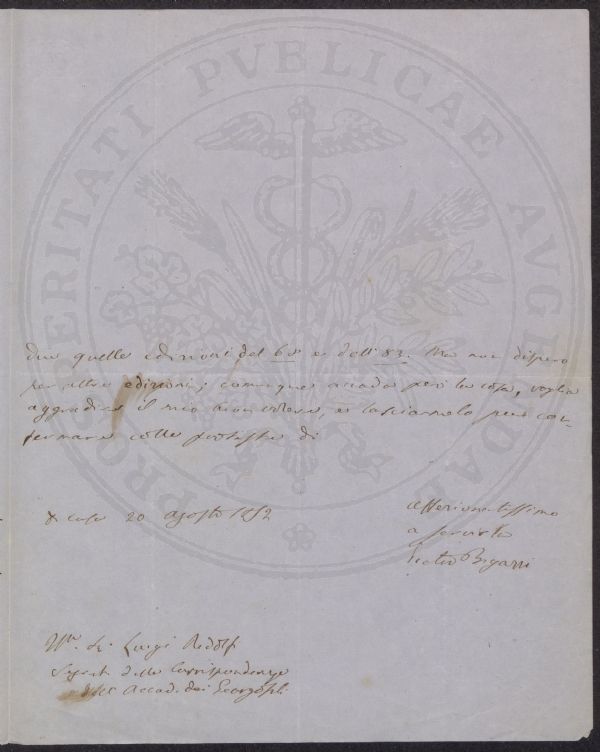 PROSPERITATI PVBLICAE AVGENDAE
due quelle edizioni del 68 e dell' 83. Ma non dispero
per altre edizioni; comunque accada però la cosa, voglia
aggradire il mio buon volere, e lasciarmela pure con-
fermare colle proteste di
Di casa 20 Agosto 1852
Affezionatissimo
a servirla
Pietro Bigazzi
Ill.mo Sig. Luigi Ridolfi
Segret. delle Corrispondenze
dell' Accad. dei Georgofili